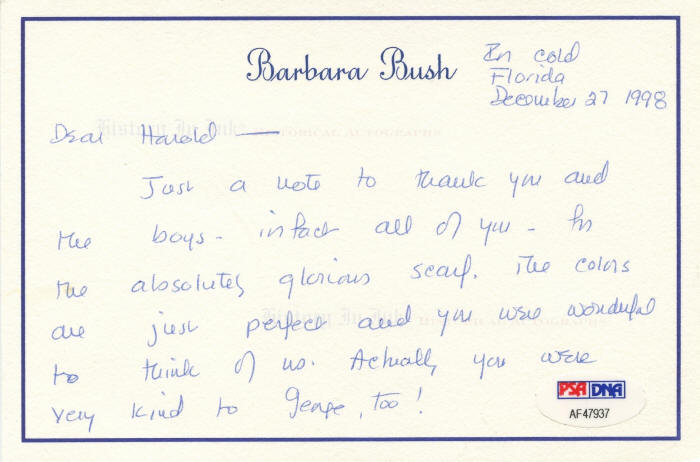 Barbara Bush
In cold
Florida
December 27 1998
Dear Harold —
History In Ink HISTORICAL AUTOGRAPHS
Just a note to thank you and
the boys - in fact all of you - for
the absolutely glorious scarf. The colors
History In Ink HISTORICAL AUTOGRAPHS
are just perfect and you were wonderful
to think of us. Actually you were
very kind to George, too!
PSA DNA
AF47937